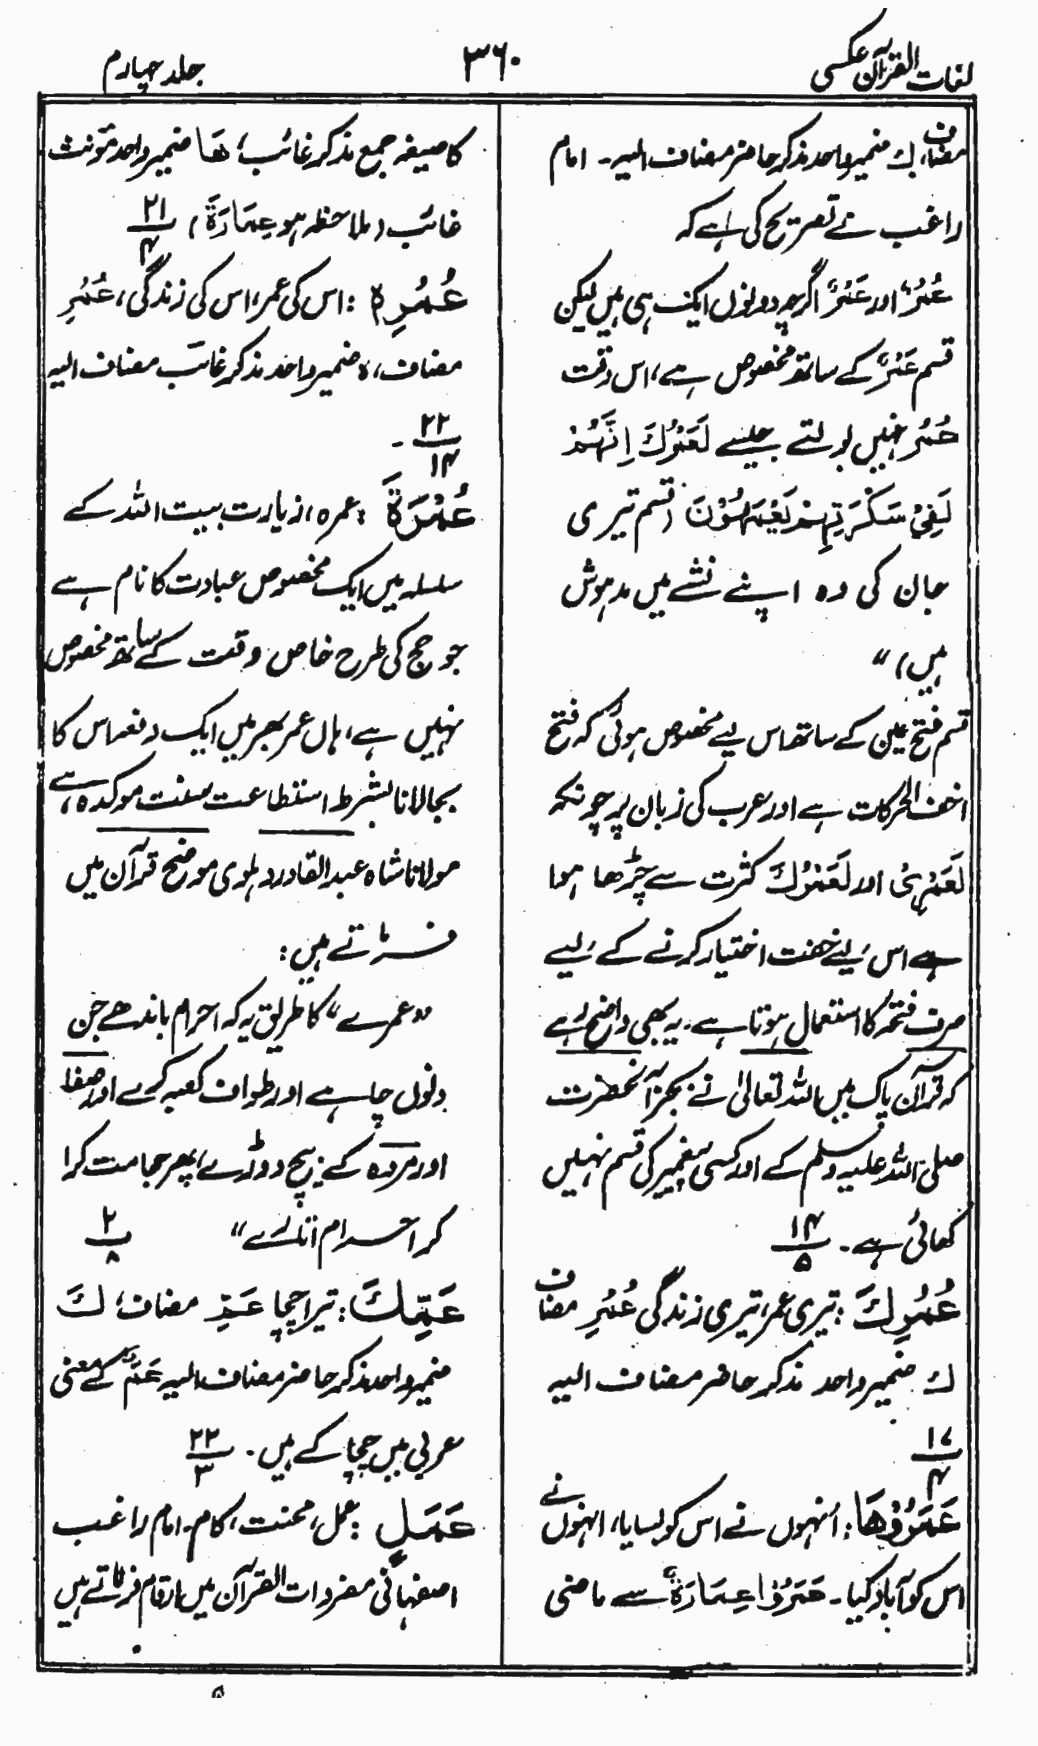 لغات القرآن عکسی
۳۶۰
جلد چہارم
مضاف، ك ضمیر واحد مذکر حاضر مضاف الیہ۔ امام
راغب نے تصریح کی ہے کہ
عُمُرٌ اور عَمْرٌ اگرچہ دونوں ایک ہی ہیں لیکن
قسم عَمْرٌ کے ساتھ مخصوص ہے، اس وقت
عُمُر نہیں بولتے جیسے لَعَمْرُكَ اِنَّهُمْ
لَفِيْ سَكْرَتِهِمْ يَعْمَهُوْنَ (قسم تیری
جان کی وہ اپنے نشے میں مدہوش
ہیں) "
قسم فتح عین کے ساتھ اس لیے مخصوص ہوئی کہ فتح
اخف الحرکات ہے اور عرب کی زبان پر چونکہ
لَعَمْرِيْ اور لَعَمْرُكَ کثرت سے چڑھا ہوا
ہے اس لیے خفت اختیار کرنے کے لیے
صرف فتحہ کا استعمال ہوتا ہے۔ یہ بھی واضح رہے
کہ قرآن پاک میں اللہ تعالیٰ نے بجز آنحضرت
صلی اللہ علیہ وسلم کے اور کسی پیغمبر کی قسم نہیں
کھائی ہے۔ ۱۴/۵
عُمُرِكَ: تیری عمر، تیری زندگی عُمُرِ مضاف
ك ضمیر واحد مذکر حاضر مضاف الیہ
۱۷/۴
عَمَرُوْهَا: اُنہوں نے اس کو بسایا، انہوں نے
اس کو آباد کیا۔ عَمَرُوْا عِمَارَةٌ سے ماضی
کا صیغہ جمع مذکر غائب، هَا ضمیر واحد مؤنث
غائب (ملاحظہ ہو عِمَارَةَ) ۲۱/۴
عُمُرِهٖ: اس کی عمر، اس کی زندگی، عُمُرِ
مضاف، ہ ضمیر واحد مذکر غائب مضاف الیہ
۲۲/۱۴ -
عُمْرَةَ: عمرہ، زیارت بیت اللہ کے
سلسلہ میں ایک مخصوص عبادت کا نام ہے
جو حج کی طرح خاص وقت کے ساتھ مخصوص
نہیں ہے، ہاں عمر بھر میں ایک دفعہ اس کا
بجالانا بشرط استطاعت سنت موکدہ ہے،
مولانا شاہ عبد القادر دہلوی موضح قرآن میں
فرماتے ہیں:
"عمرے" کا طریق یہ کہ احرام باندھے جن
دنوں چاہے اور طواف کعبہ کرے اور صفا
اور مروہ کے بیچ دوڑے، پھر حجامت کرا
کر احرام اتارے" ۲/۸
عَمِّكَ: تیرا چچا عَمِّ مضاف، كَ
ضمیر واحد مذکر حاضر مضاف الیہ عَمٌّ کے معنی
عربی میں چچا کے ہیں۔ ۲۲/۳
عَمَلٍ: عمل، محنت، کام۔ امام راغب
اصفہانی مفردات القرآن میں ارقام فرماتے ہیں